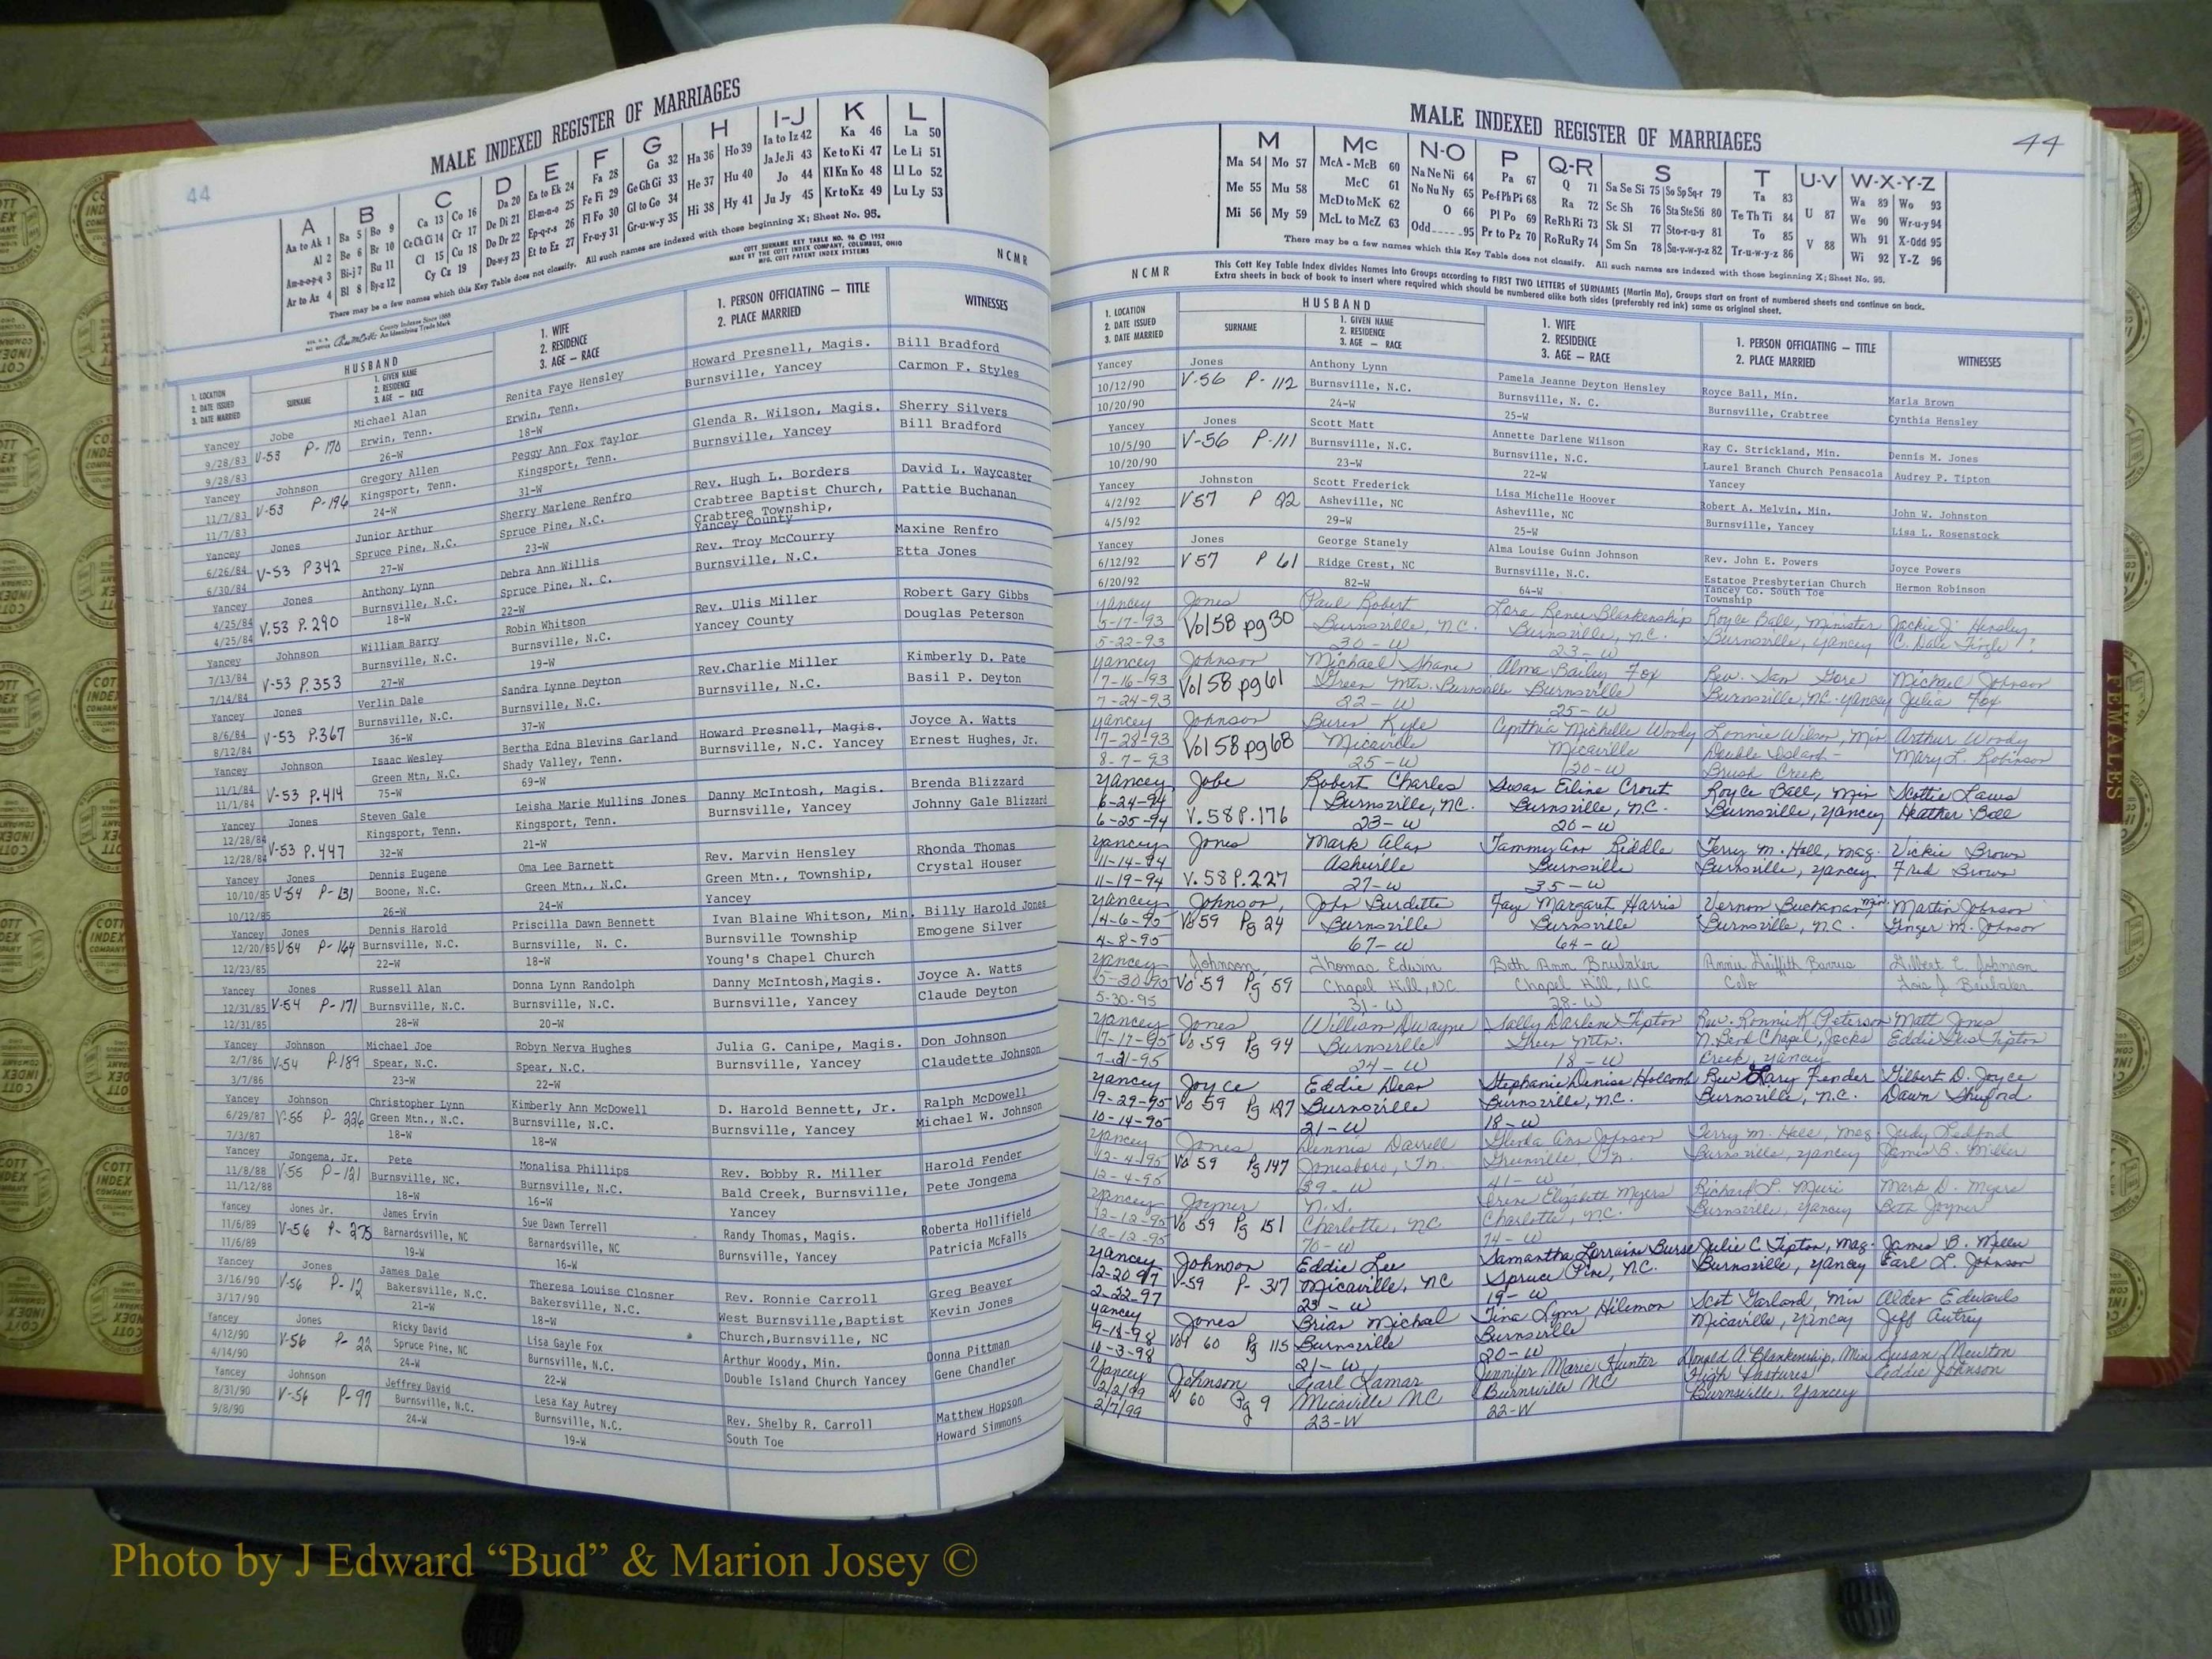 44
MALE INDEXED REGISTER OF MARRIAGES
A B C D E F G H I-J K L
Aa to Ak 1 Ba 5 Bo 9 Ca 13 Co 16 Da 20 Ea to Ek 24 Fa 28 Ga 32 Ha 36 Ho 39 Ia to Iz 42 Ka 46 La 50
Al 2 Be 6 Br 10 Ce Ch Ci 14 Cr 17 De Di 21 El-m-n-o 25 Fe Fi 29 Ge Gh Gi 33 He 37 Hu 40 Ja Je Ji 43 Ke to Ki 47 Le Li 51
Am-n-o-p-q 3 Bi-j 7 Bu 11 Cl 15 Cu 18 Do Dr 22 Ep-q-r-s 26 Fl Fo 30 Gl to Go 34 Hi 38 Hy 41 Jo 44 Kl Kn Ko 48 Ll Lo 52
Ar to Az 4 Bl 8 By-z 12 Cy Cz 19 Du-w-y 23 Et to Ez 27 Fr-u-y 31 Gr-u-w-y 35 Ju Jy 45 Kr to Kz 49 Lu Ly 53
There may be a few names which this Key Table does not classify. All such names are indexed with those beginning X; Sheet No. 95.
COTT SURNAME KEY TABLE NO. 96 © 1952
MADE BY THE COTT INDEX COMPANY, COLUMBUS, OHIO
MFG. COTT PATENT INDEX SYSTEMS
NCMR
County Indexes Since 1888
An Identifying Trade Mark
1. LOCATION
2. DATE ISSUED
3. DATE MARRIED
HUSBAND
SURNAME
1. GIVEN NAME
2. RESIDENCE
3. AGE — RACE
1. WIFE
2. RESIDENCE
3. AGE — RACE
1. PERSON OFFICIATING — TITLE
2. PLACE MARRIED
WITNESSES
Yancey Jobe Michael Alan Renita Faye Hensley Howard Presnell, Magis. Bill Bradford
9/28/83 V-53 P-170 Erwin, Tenn. Erwin, Tenn. Burnsville, Yancey Carmon F. Styles
9/28/83 26-W 18-W
Yancey Johnson Gregory Allen Peggy Ann Fox Taylor Glenda R. Wilson, Magis. Sherry Silvers
11/7/83 V-53 P-196 Kingsport, Tenn. Kingsport, Tenn. Burnsville, Yancey Bill Bradford
11/7/83 24-W 31-W
Yancey Jones Junior Arthur Sherry Marlene Renfro Rev. Hugh L. Borders David L. Waycaster
6/26/84 V-53 P342 Spruce Pine, N.C. Spruce Pine, N.C. Crabtree Baptist Church, Pattie Buchanan
6/30/84 27-W 23-W Crabtree Township,
Yancey County
Yancey Jones Anthony Lynn Debra Ann Willis Rev. Troy McCourry Maxine Renfro
4/25/84 V.53 P.290 Burnsville, N.C. Spruce Pine, N. C. Burnsville, N.C. Etta Jones
4/25/84 18-W 22-W
Yancey Johnson William Barry Robin Whitson Rev. Ulis Miller Robert Gary Gibbs
7/13/84 V-53 P.353 Burnsville, N.C. Burnsville, N.C. Yancey County Douglas Peterson
7/14/84 27-W 19-W
Yancey Jones Verlin Dale Sandra Lynne Deyton Rev.Charlie Miller Kimberly D. Pate
8/6/84 V-53 P.367 Burnsville, N.C. Burnsville, N.C. Burnsville, N.C. Basil P. Deyton
8/12/84 36-W 37-W
Yancey Johnson Isaac Wesley Bertha Edna Blevins Garland Howard Presnell, Magis. Joyce A. Watts
11/1/84 V-53 P.414 Green Mtn, N.C. Shady Valley, Tenn. Burnsville, N.C. Yancey Ernest Hughes, Jr.
11/1/84 75-W 69-W
Yancey Jones Steven Gale Leisha Marie Mullins Jones Danny McIntosh, Magis. Brenda Blizzard
12/28/84 V-53 P.447 Kingsport, Tenn. Kingsport, Tenn. Burnsville, Yancey Johnny Gale Blizzard
12/28/84 32-W 21-W
Yancey Jones Dennis Eugene Oma Lee Barnett Rev. Marvin Hensley Rhonda Thomas
10/10/85 V-54 P-131 Boone, N.C. Green Mtn., N.C. Green Mtn., Township, Crystal Houser
10/12/85 26-W 24-W Yancey
Yancey Jones Dennis Harold Priscilla Dawn Bennett Ivan Blaine Whitson, Min. Billy Harold Jones
12/20/85 V-54 P-164 Burnsville, N.C. Burnsville, N. C. Burnsville Township Emogene Silver
12/23/85 22-W 18-W Young's Chapel Church
Yancey Jones Russell Alan Donna Lynn Randolph Danny McIntosh,Magis. Joyce A. Watts
12/31/85 V-54 P-171 Burnsville, N.C. Burnsville, N.C. Burnsville, Yancey Claude Deyton
12/31/85 28-W 20-W
Yancey Johnson Michael Joe Robyn Nerva Hughes Julia G. Canipe, Magis. Don Johnson
2/7/86 V-54 P-189 Spear, N.C. Spear, N.C. Burnsville, Yancey Claudette Johnson
3/7/86 23-W 22-W
Yancey Johnson Christopher Lynn Kimberly Ann McDowell D. Harold Bennett, Jr. Ralph McDowell
6/29/87 V-55 P-226 Green Mtn., N.C. Burnsville, N.C. Burnsville, Yancey Michael W. Johnson
7/3/87 18-W 18-W
Yancey Jongema, Jr. Pete Monalisa Phillips Rev. Bobby R. Miller Harold Fender
11/8/88 V-55 P-121 Burnsville, NC. Burnsville, N.C. Bald Creek, Burnsville, Pete Jongema
11/12/88 18-W 16-W Yancey
Yancey Jones Jr. James Ervin Sue Dawn Terrell Randy Thomas, Magis. Roberta Hollifield
11/6/89 V-56 P-275 Barnardsville, NC Barnardsville, NC Burnsville, Yancey Patricia McFalls
11/6/89 19-W 16-W
Yancey Jones James Dale Theresa Louise Closner Rev. Ronnie Carroll Greg Beaver
3/16/90 V-56 P-12 Bakersville, N.C. Bakersville, N.C. West Burnsville,Baptist Kevin Jones
3/17/90 21-W 18-W Church,Burnsville, NC
Yancey Jones Ricky David Lisa Gayle Fox Arthur Woody, Min. Donna Pittman
4/12/90 V-56 P-22 Spruce Pine, NC Burnsville, N.C. Double Island Church Yancey Gene Chandler
4/14/90 24-W 22-W
Yancey Johnson Jeffrey David Lesa Kay Autrey Rev. Shelby R. Carroll Matthew Hopson
8/31/90 V-56 P-97 Burnsville, N.C. Burnsville, N.C. South Toe Howard Simmons
9/8/90 24-W 19-W
MALE INDEXED REGISTER OF MARRIAGES
44
M Mc N-O P Q-R S T U-V W-X-Y-Z
Ma 54 Mo 57 McA - McB 60 Na Ne Ni 64 Pa 67 Q 71 Sa Se Si 75 So Sp Sq-r 79 Ta 83 Wa 89 Wo 93
Me 55 Mu 58 McC 61 No Nu Ny 65 Pe-f Ph Pi 68 Ra 72 Sc Sh 76 Sta Ste Sti 80 Te Th Ti 84 U 87 We 90 Wr-u-y 94
Mi 56 My 59 McD to McK 62 O 66 Pl Po 69 Re Rh Ri 73 Sk Sl 77 Sto-r-u-y 81 To 85 V 88 Wh 91 X-Odd 95
McL to McZ 63 Odd 95 Pr to Pz 70 Ro Ru Ry 74 Sm Sn 78 Su-v-w-y-z 82 Tr-u-w-y-z 86 Wi 92 Y-Z 96
There may be a few names which this Key Table does not classify. All such names are indexed with those beginning X; Sheet No. 95.
NCMR
This Cott Key Table Index divides Names into Groups according to FIRST TWO LETTERS of SURNAMES (Martin Ma), Groups start on front of numbered sheets and continue on back.
Extra sheets in back of book to insert where required which should be numbered alike both sides (preferably red ink) same as original sheet.
1. LOCATION
2. DATE ISSUED
3. DATE MARRIED
HUSBAND
SURNAME
1. GIVEN NAME
2. RESIDENCE
3. AGE — RACE
1. WIFE
2. RESIDENCE
3. AGE — RACE
1. PERSON OFFICIATING — TITLE
2. PLACE MARRIED
WITNESSES
Yancey Jones Anthony Lynn Pamela Jeanne Deyton Hensley Royce Ball, Min. Marla Brown
10/12/90 V-56 P-112 Burnsville, N.C. Burnsville, N. C. Burnsville, Crabtree Cynthia Hensley
10/20/90 24-W 25-W
Yancey Jones Scott Matt Annette Darlene Wilson Ray C. Strickland, Min. Dennis M. Jones
10/5/90 V-56 P-111 Burnsville, N.C. Burnsville, N.C. Laurel Branch Church Pensacola Audrey P. Tipton
10/20/90 23-W 22-W Yancey
Yancey Johnston Scott Frederick Lisa Michelle Hoover Robert A. Melvin, Min. John W. Johnston
4/2/92 V57 P Asheville, NC Asheville, NC Burnsville, Yancey Lisa L. Rosenstock
4/5/92 29-W 25-W
Yancey Jones George Stanely Alma Louise Guinn Johnson Rev. John E. Powers Joyce Powers
6/12/92 V57 P 61 Ridge Crest, NC Burnsville, N.C. Estatoe Presbyterian Church Hermon Robinson
6/20/92 82-W 64-W Yancey Co. South Toe
Township
Yancey Jones Paul Robert Lora Renee Blankenship Royce Ball, Minister Jackie J. Hensley
5-17-93 Vol58 pg30 Burnsville, N.C. Burnsville, N.C. Burnsville, Yancey C. Dale
5-22-93 30-W 23-W
Yancey Johnson Michael Shane Alma Bailey Fox Rev. Sam Gore Michael Johnson
7-16-93 Vol58 pg61 Green Mtn. Burnsville Burnsville Burnsville, NC. Yancey Julia Fox
7-24-93 22-W 25-W
Yancey Johnson Buren Kyle Cynthia Michelle Woody Lonnie Wilson, Min Arthur Woody
7-28-93 Vol58 pg68 Micaville Micaville Double Island- Mary L. Robinson
8-7-93 25-W 20-W Brush Creek
Yancey Jobe Robert Charles Susan Eiline Crout Royce Ball, Min Scottie Laws
6-24-94 V.58 P.176 Burnsville, N.C. Burnsville, N.C. Burnsville, Yancey Heather Ball
6-25-94 23-W 20-W
Yancey Jones Mark Alan Tammy Ann Riddle Terry M. Hall, Mag. Vickie Brown
11-14-94 V.58 P.227 Asheville Burnsville Burnsville, Yancey Fred Brown
11-19-94 27-W 35-W
Yancey Johnson, John Burdette Faye Margaret Harris Vernon Buchanan Min. Martin Johnson
4-6-95 Vo59 Pg 24 Burnsville Burnsville Burnsville, N.C. Ginger M. Johnson
4-8-95 67-W 64-W
Yancey Johnson, Thomas Edwin Beth Ann Brubaker Annie Griffith Gilbert C. Johnson
5-30-95 Vo 59 Pg 59 Chapel Hill, NC Chapel Hill, NC Celo Brubaker
5-30-95 31-W 28-W
Yancey Jones William Dwayne Sally Darlene Tipton Rev. Ronnie K Peterson Matt Jones
7-17-95 Vo 59 Pg 94 Burnsville Green Mtn. Chapel, Jacks Eddie Tipton
7-21-95 24-W 18-W Creek, Yancey
Yancey Joyce Eddie Dean Stephanie Denise Holcomb Rev Gary Fender Gilbert D. Joyce
9-29-95 Vo 59 Pg 127 Burnsville Burnsville, N.C. Burnsville, N.C. Dawn Shuford
10-14-95 21-W 18-W
Yancey Jones Dennis Darrell Glenda Ann Johnson Terry M. Hall, Mag. Judy Ledford
12-4-95 Vo 59 Pg 147 Jonesboro, Tn. Greenville, Tn. Burnsville, Yancey James B. Miller
12-4-95 39-W 41-W
Yancey Joyner N.S. Irene Elizabeth Myers Richard L. Muri Mark D. Myers
12-12-95 Vo 59 Pg 151 Charlotte, NC Charlotte, N.C. Burnsville, Yancey Beth Joyner
12-12-95 70-W 74-W
Yancey Johnson Eddie Lee Samantha Lorraine Julie C. Tipton, Mag. James B. Miller
2-20-97 V-59 P-317 Micaville, NC Spruce Pine, N.C. Burnsville, Yancey Earl L. Johnson
2-22-97 23-W 19-W
Yancey Jones Brian Micheal Tina Lynn Hileman Scot Garland, Min Alden Edwards
9-18-98 Vol 60 Pg 115 Burnsville Burnsville Micaville, Yancey Jeff Autrey
10-3-98 21-W 20-W
Yancey Johnson Earl Lamar Jennifer Marie Hunter Donald A. Blankenship, Min Susan Newton
2/2/99 V 60 Pg 9 Micaville NC Burnsville NC High Pastures Eddie Johnson
2/7/99 23-W 22-W Burnsville, Yancey
FEMALES
Photo by J Edward “Bud” & Marion Josey ©